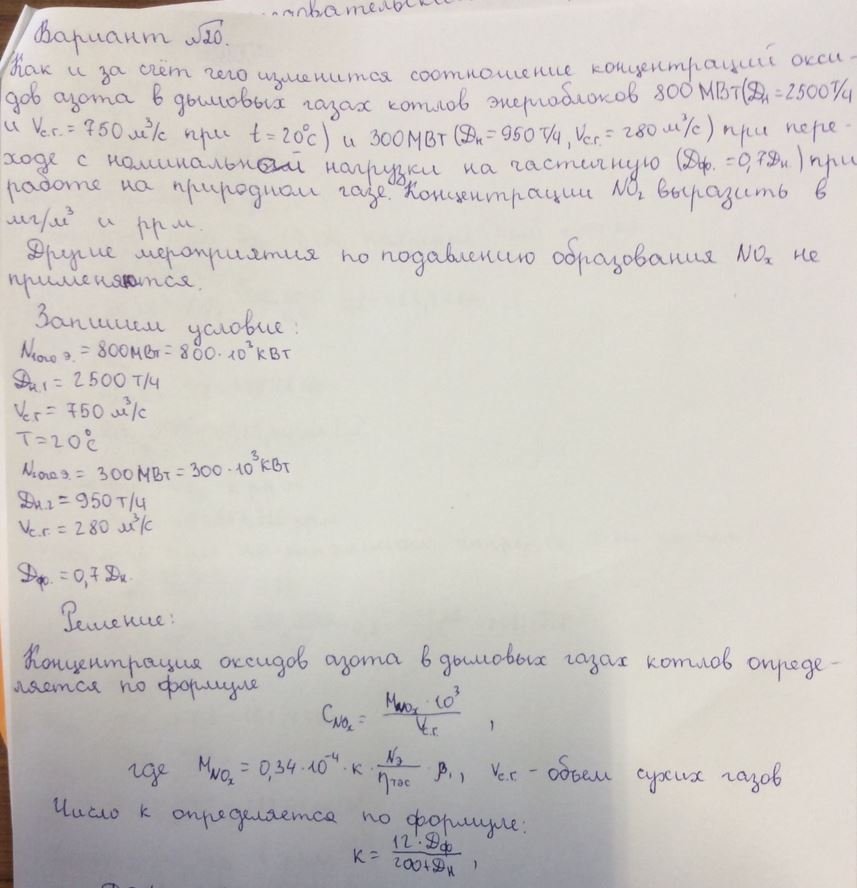 Вариант №20.
Как и за счёт чего изменится соотношение концентраций окси-
дов азота в дымовых газах котлов энергоблоков 800 МВт (Дн = 2500 т/ч
и Vс.г. = 750 м³/с при t = 20°С) и 300 МВт (Дн = 950 т/ч, Vс.г. = 280 м³/с) при пере-
ходе с номинальной нагрузки на частичную (Дф. = 0,7Дн) при
работе на природном газе. Концентрации NO₂ выразить в
мг/м³ и ppm.
Другие мероприятия по подавлению образования NOx не
применяются.
Запишем условие:
= 800 МВт = 800·10³ кВт
Дн.1 = 2500 т/ч
Vс.г. = 750 м³/с
T = 20°С
= 300 МВт = 300·10³ кВт
Дн.2 = 950 т/ч
Vс.г. = 280 м³/с
Дф. = 0,7 Дн.
Решение:
Концентрация оксидов азота в дымовых газах котлов опреде-
ляется по формуле
C_NOx = M_NOx · 10³ / Vс.г. ,
где M_NOx = 0,34·10⁻⁴ · к · Nэ / ηтэс · β₁ , Vс.г. - объем сухих газов
Число к определяется по формуле:
к = 12 · Дф / 200 + Дн ,